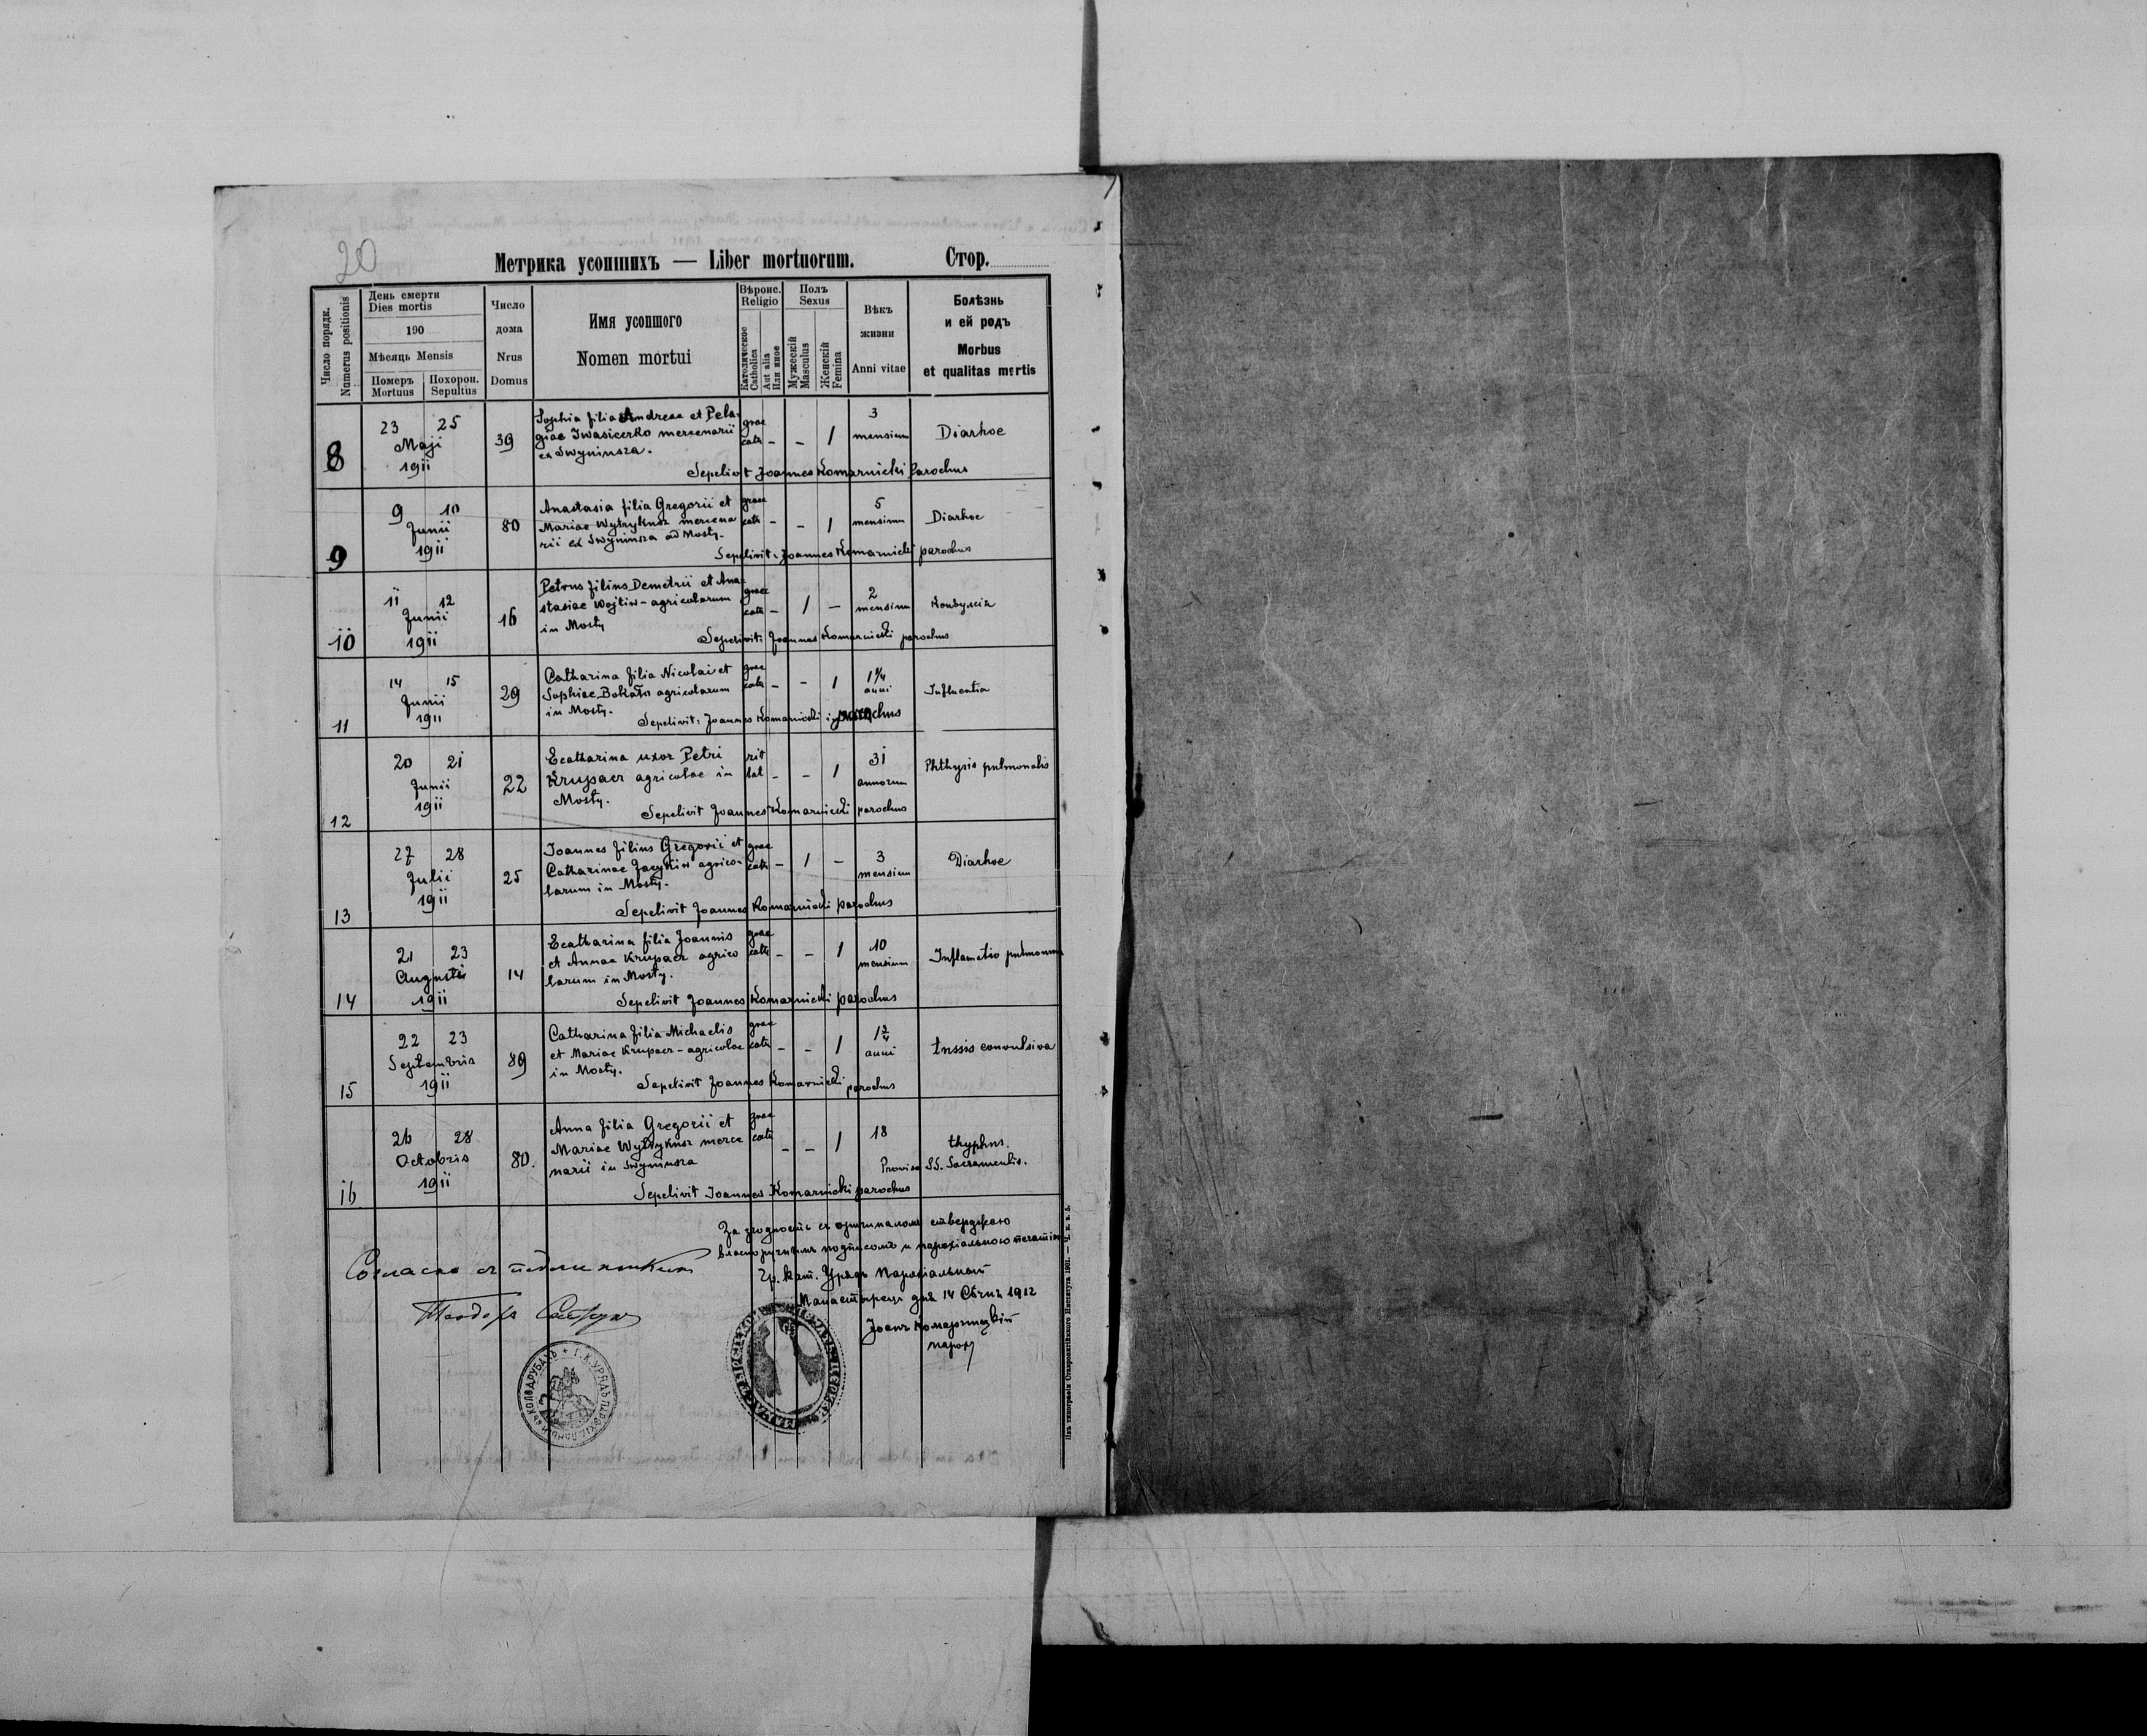 20
Метрика усопшихъ — Liber mortuorum.
Стор.
Число порядк.
Numerus positionis
День смерти
Dies mortis
190
Мѣсяць Mensis
Померъ
Mortuus
Похорон.
Sepultus
Число
дома
Nrus
Domus
Имя усопшого
Nomen mortui
Вѣроис.
Religio
Католическое
Catholica
Aut alia
Или иное
Полъ
Sexus
Мужескій
Masculus
Женскій
Femina
Вѣкъ
жизни
Anni vitae
Болѣзнь
и ей родъ
Morbus
et qualitas mortis
8
23 25
Maji
1911
39
Sophia filia Andreae et Pela-
giae Iwasieczko mercenarii
ex Swyninsza.
grae
cath - - 1
3
mensium
Diarhoe
Sepelivit Joannes Komarnicki Parochus
9
9 10
Junii
1911
80
Anastasia filia Gregorii et
Mariae Wytrykusz mercena
rii ex Swyninsza ad Mosty.
graec
cath - - 1
5
mensium
Diarhoe
Sepelivit: Joannes Komarnicki parochus
10
11 12
Junii
1911
16
Petrus filius Demetrii et Ana-
stasiae Wojtiw - agricolarum
in Mosty
graec
cath - 1 -
2
mensium
Конвулсія
Sepelivit: Joannes Komarnicki parochus
11
14 15
Junii
1911
29
Catharina filia Nicolai et
Sophiae agricolarum
in Mosty.
grae
cath - - 1
1 1/4
anni
Influentia
Sepelivit: Joannes Komarnicki parochus
12
20 21
Junii
1911
22
Ecatharina uxor Petri
Krupacz agricolae in
Mosty.
rit
lat - - 1
31
annorum
Phthysis pulmonalis
Sepelivit Joannes Komarnicki parochus
13
27 28
Julii
1911
25
Ioannes filius Gregorii et
Catharinae Jacykiw agrico-
larum in Mosty.
grae
cath - 1 -
3
mensium
Diarhoe
Sepelivit Joannes Komarnicki parochus
14
21 23
Augusti
1911
14
Ecatharina filia Joannis
et Annae Krupacz agrico
larum in Mosty.
grae
cath - - 1
10
mensium
Inflamatio pulmonum
Sepelivit Joannes Komarnicki parochus
15
22 23
Septembris
1911
89
Catharina filia Michaelis
et Mariae Krupacz - agricolae
in Mosty.
grae
cath - - 1
1 3/4
anni
tussis convulsiva
Sepelivit Joannes Komarnicki parochus
16
26 28
Octobris
1911
80.
Anna filia Gregorii et
Mariae Wytrykusz merce
narii in Swyninsza
grae
cath - - 1
18
thyphus.
Provisa SS. Sacramentis.
Sepelivit Ioannes Komarnicki parochus
За згодность съ оригиналомъ стверджаю
власноручнымъ подписомъ и парохіальною печатію
Гр. кат. Урядъ Парохіальный
Манастырець дня 14 Сѣчня 1912
Іоанъ Комарницкій
парох
Согласно съ
Теодоръ
Г. К. УРЯДЪ ПАРОХІАЛЬНЫЙ ВЪ КОЛОДРУБАХЪ
Изъ типографіи Ставропигійского Института 1901.